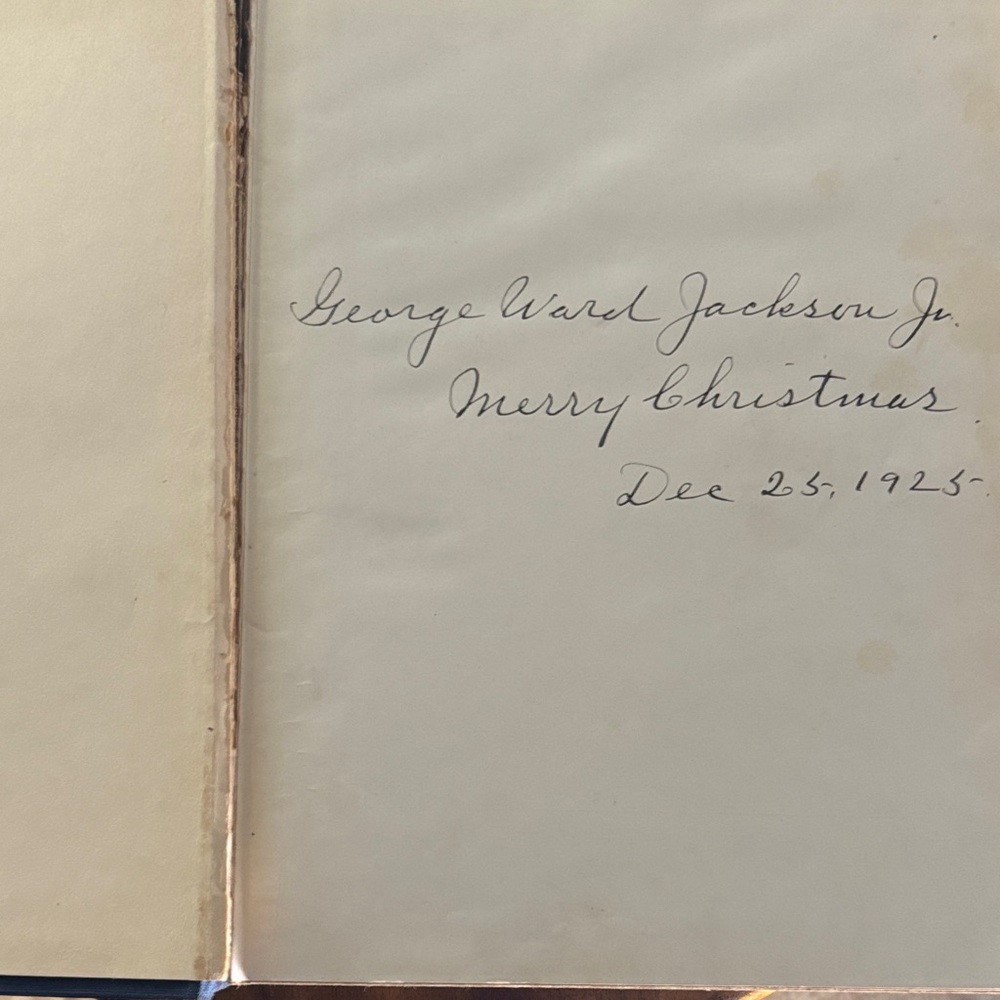 George Ward Jackson Jr.
Merry Christmas.
Dec 25, 1925.